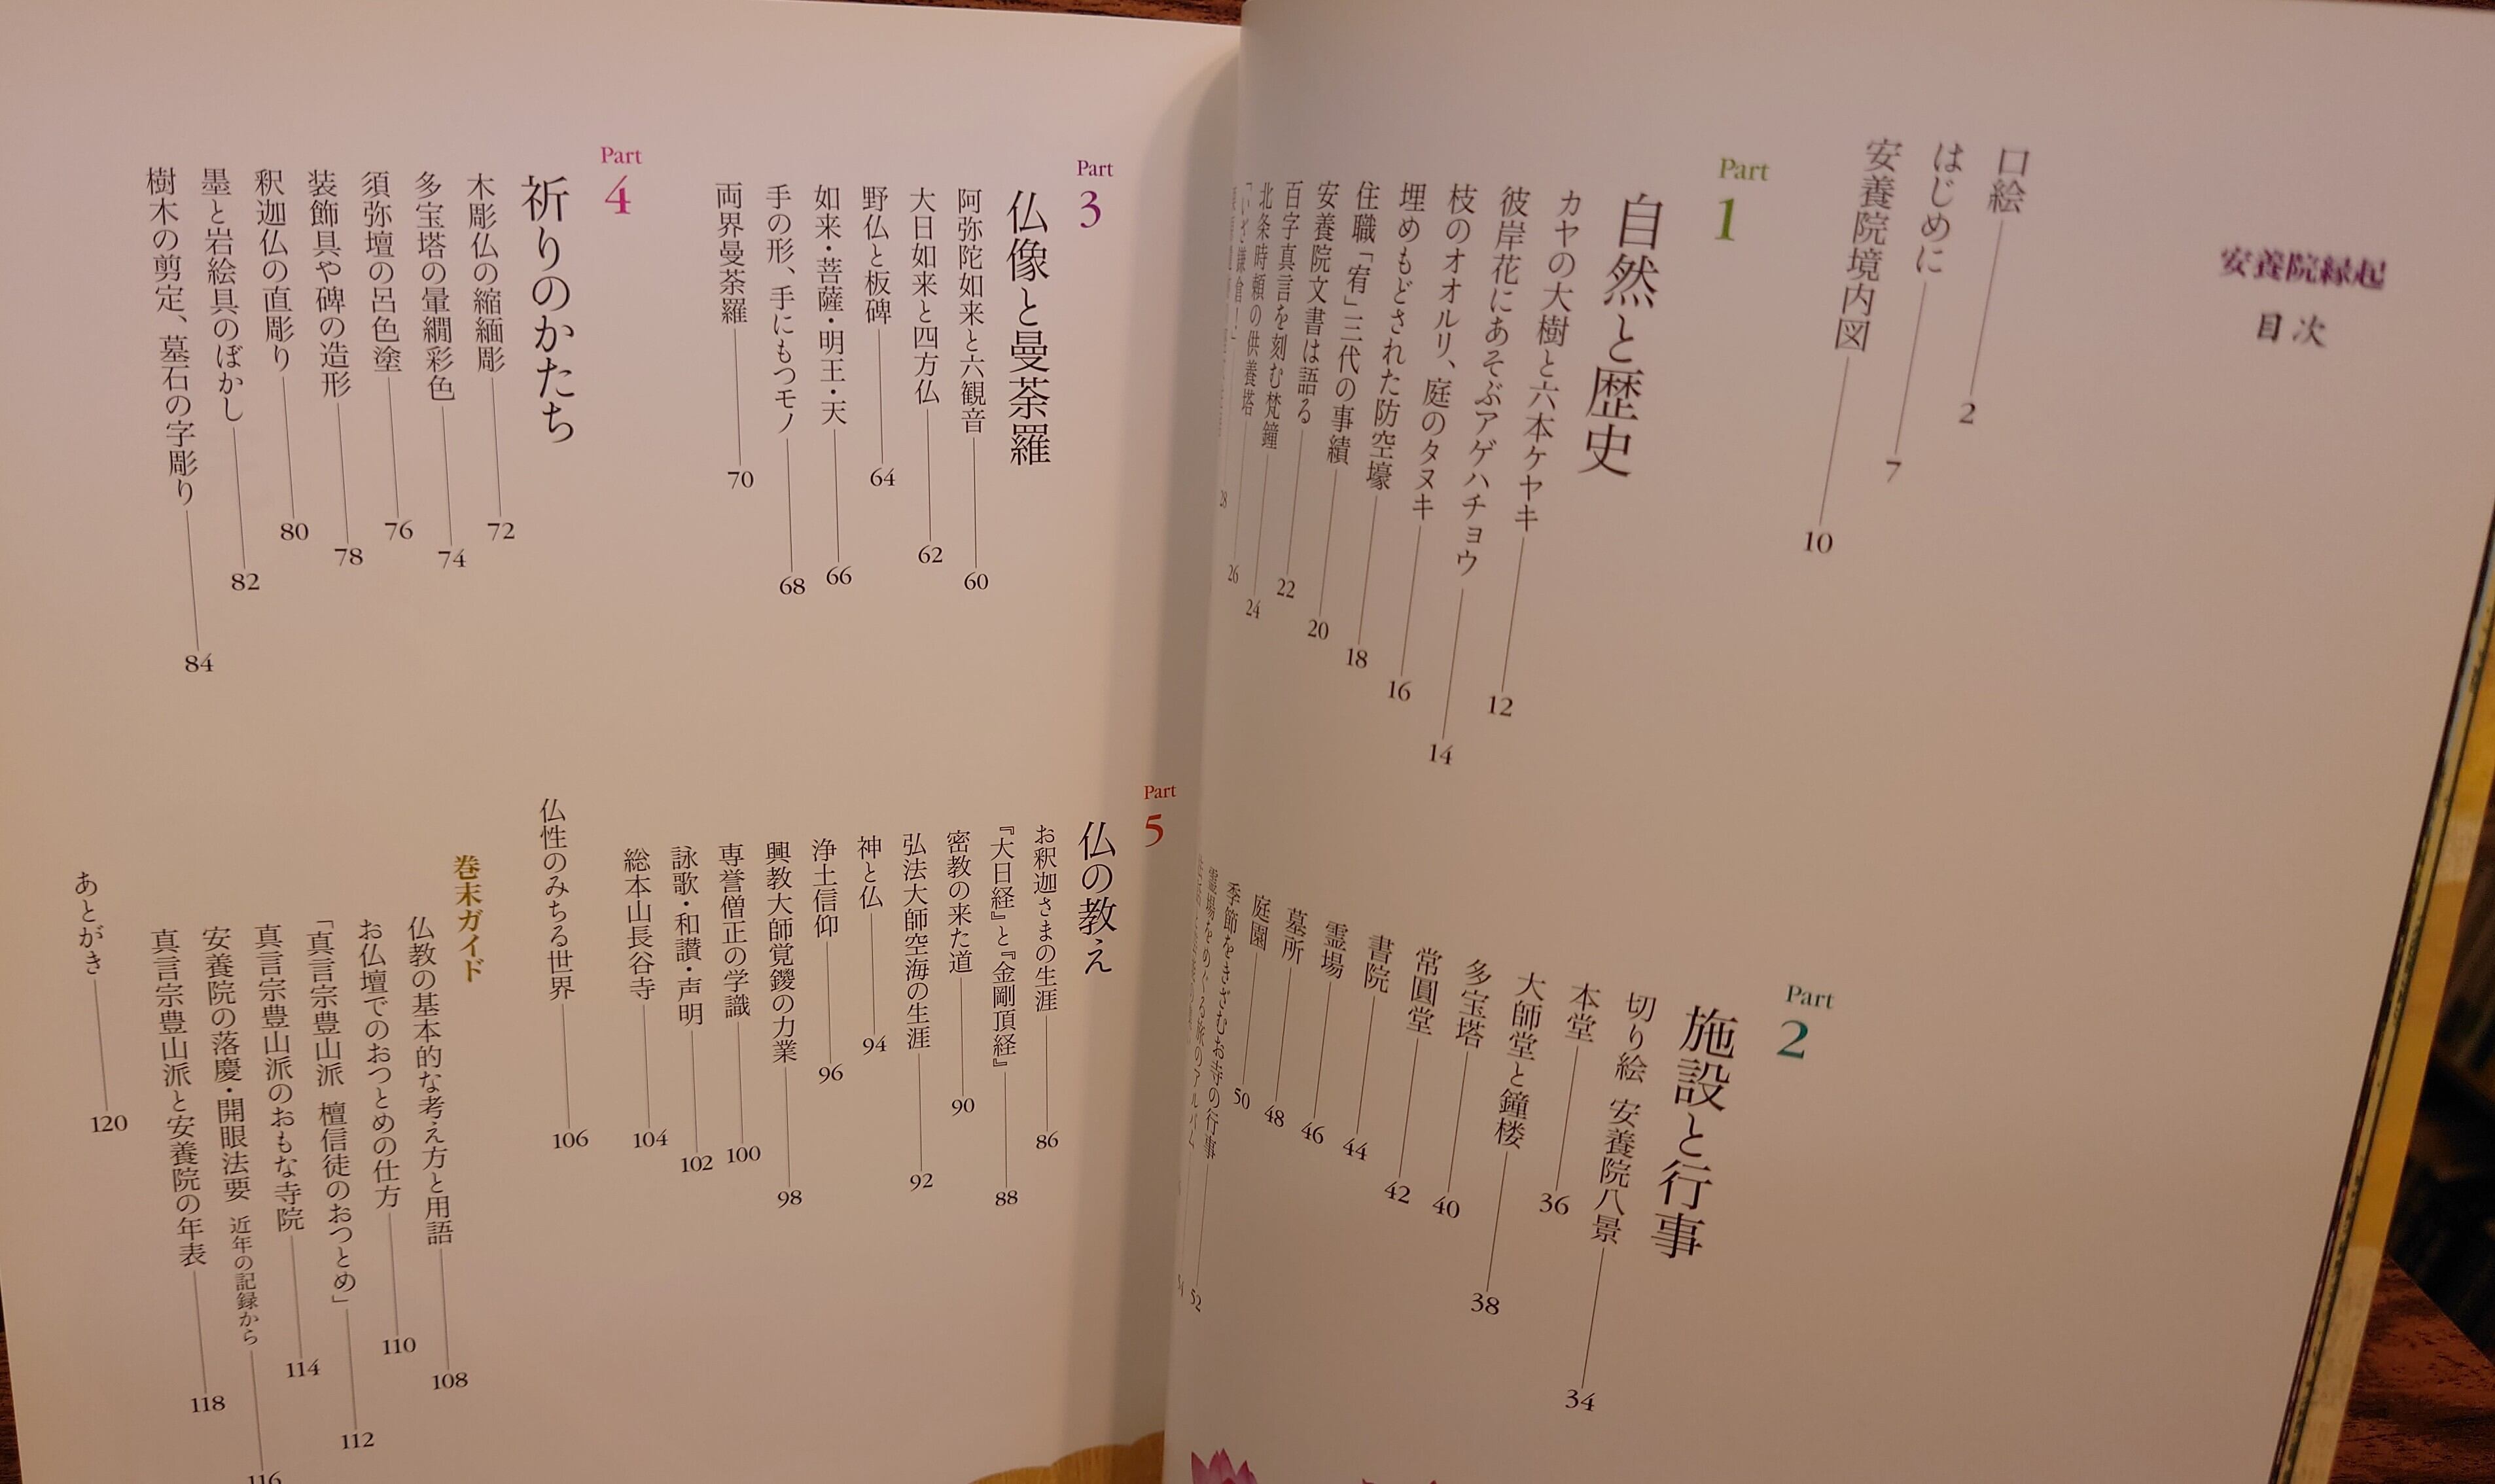 安養院縁起
目次
口絵 2
はじめに 7
安養院境内図 10
Part 1
自然と歴史
カヤの大樹と六本ケヤキ 12
彼岸花にあそぶアゲハチョウ 14
枝のオオルリ、庭のタヌキ 16
埋めもどされた防空壕 18
住職「宥」三代の事績 20
安養院文書は語る 22
百字真言を刻む梵鐘 24
北条時頼の供養塔 26
「いざ鎌倉！」 28
Part 2
施設と行事
切り絵 安養院八景 34
本堂 36
大師堂と鐘楼 38
多宝塔 40
常圓堂 42
書院 44
霊場 46
墓所 48
庭園 50
季節をきざむお寺の行事 52
霊場をめぐる旅のアルバム 54
Part 3
仏像と曼荼羅
阿弥陀如来と六観音 60
大日如来と四方仏 62
野仏と板碑 64
如来・菩薩・明王・天 66
手の形、手にもつモノ 68
両界曼荼羅 70
Part 4
祈りのかたち
木彫仏の縮緬彫 72
多宝塔の暈繝彩色 74
須弥壇の呂色塗 76
装飾具や碑の造形 78
釈迦仏の直彫り 80
墨と岩絵具のぼかし 82
樹木の剪定、墓石の字彫り 84
Part 5
仏の教え
お釈迦さまの生涯 86
『大日経』と『金剛頂経』 88
密教の来た道 90
弘法大師空海の生涯 92
神と仏 94
浄土信仰 96
興教大師覚鑁の力業 98
専誉僧正の学識 100
詠歌・和讃・声明 102
総本山長谷寺 104
仏性のみちる世界 106
巻末ガイド
仏教の基本的な考え方と用語 108
お仏壇でのおつとめの仕方 110
「真言宗豊山派 檀信徒のおつとめ」 112
真言宗豊山派のおもな寺院 114
安養院の落慶・開眼法要 近年の記録から 116
真言宗豊山派と安養院の年表 118
あとがき 120